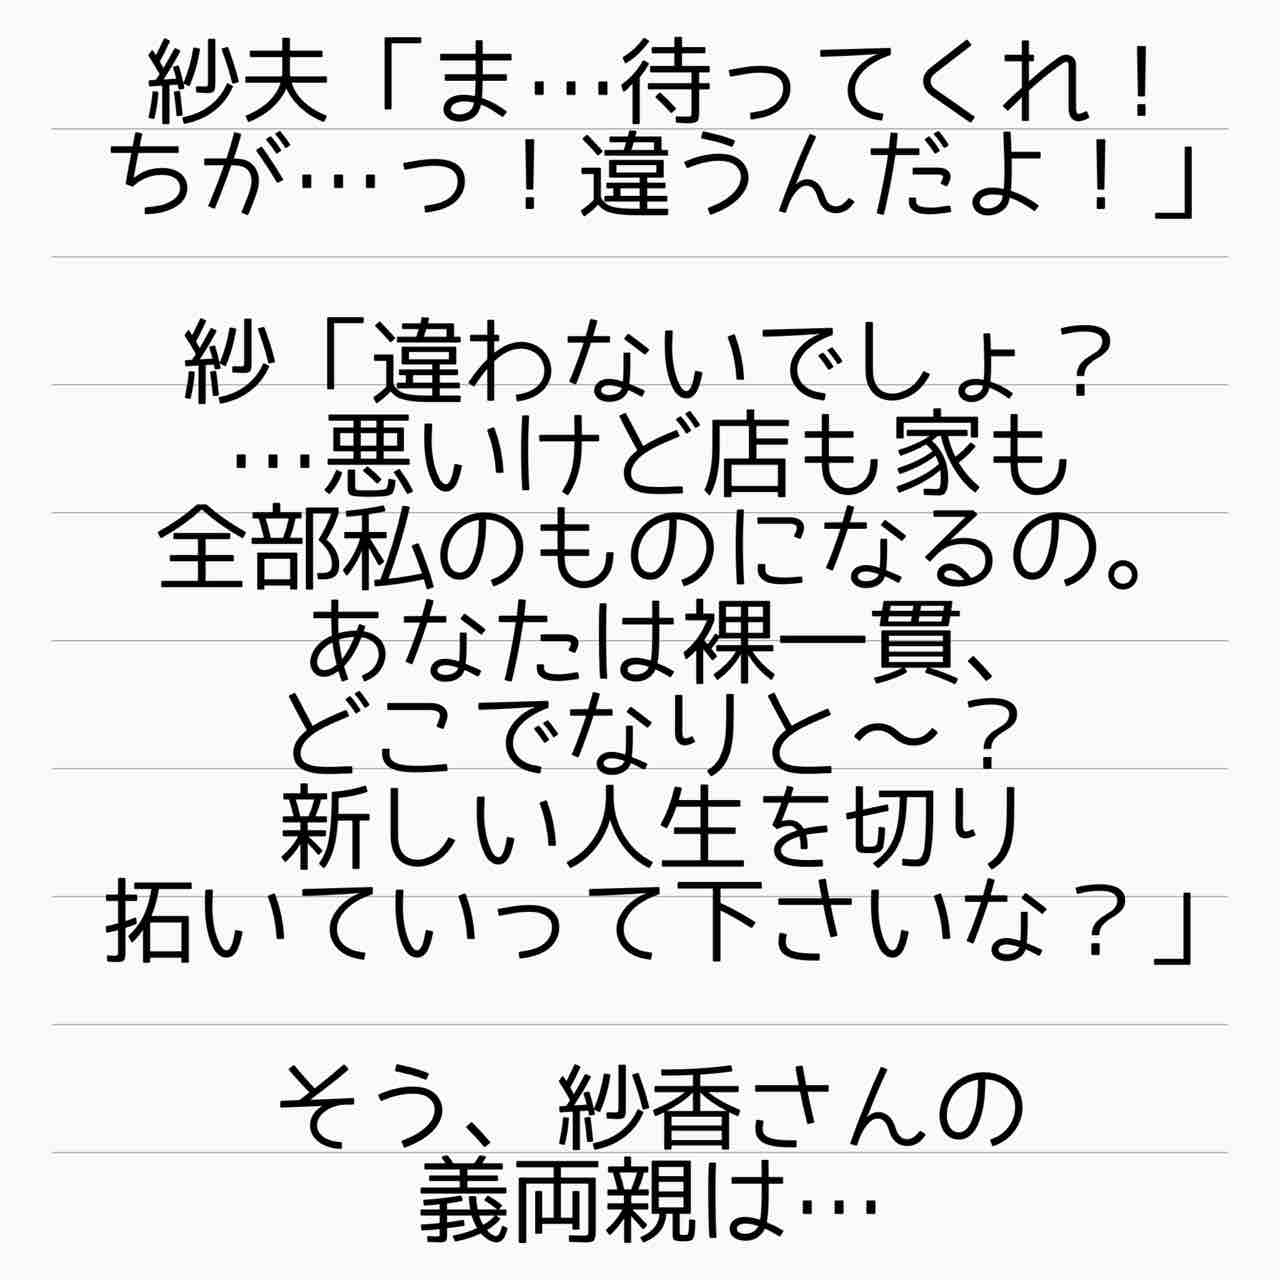 紗夫「ま…待ってくれ！
ちが…っ！違うんだよ！」
紗「違わないでしょ？
…悪いけど店も家も
全部私のものになるの。
あなたは裸一貫、
どこでなりと〜？
新しい人生を切り
拓いていって下さいな？」
そう、紗香さんの
義両親は…